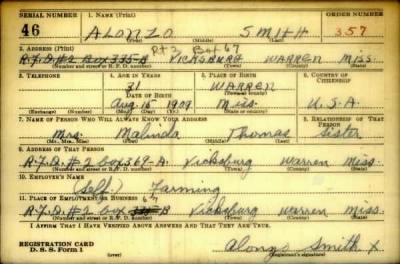 SERIAL NUMBER 1. NAME (Print) ORDER NUMBER
46 ALONZO SMITH 357
(First) (Middle) (Last)
2. ADDRESS (Print) Rt 2 Box 67
R.F.D.#2 Box 335-B VICKSBURG WARREN MISS.
(Number and street or R. F. D. number) (Town) (County) (State)
3. TELEPHONE 4. AGE IN YEARS 5. PLACE OF BIRTH 6. COUNTRY OF CITIZENSHIP
31 WARREN
DATE OF BIRTH (Town or county)
Aug 15 1909 Miss. U.S.A.
(Exchange) (Number) (Mo.) (Day) (Yr.) (State or country)
7. NAME OF PERSON WHO WILL ALWAYS KNOW YOUR ADDRESS 8. RELATIONSHIP OF THAT PERSON
Mrs. Malinda Thomas Sister
(Mr., Mrs., Miss) (First) (Middle) (Last)
9. ADDRESS OF THAT PERSON
R.F.D.#2 Box 369-A. Vicksburg Warren Miss.
(Number and street or R. F. D. number) (Town) (County) (State)
10. EMPLOYER'S NAME
(Self.) Farming
11. PLACE OF EMPLOYMENT OR BUSINESS 67
R.F.D.#2 Box 335-B Vicksburg Warren Miss.
(Number and street or R. F. D. number) (Town) (County) (State)
I AFFIRM THAT I HAVE VERIFIED ABOVE ANSWERS AND THAT THEY ARE TRUE.
REGISTRATION CARD
D. S. S. Form 1 (over) Alonzo Smith X